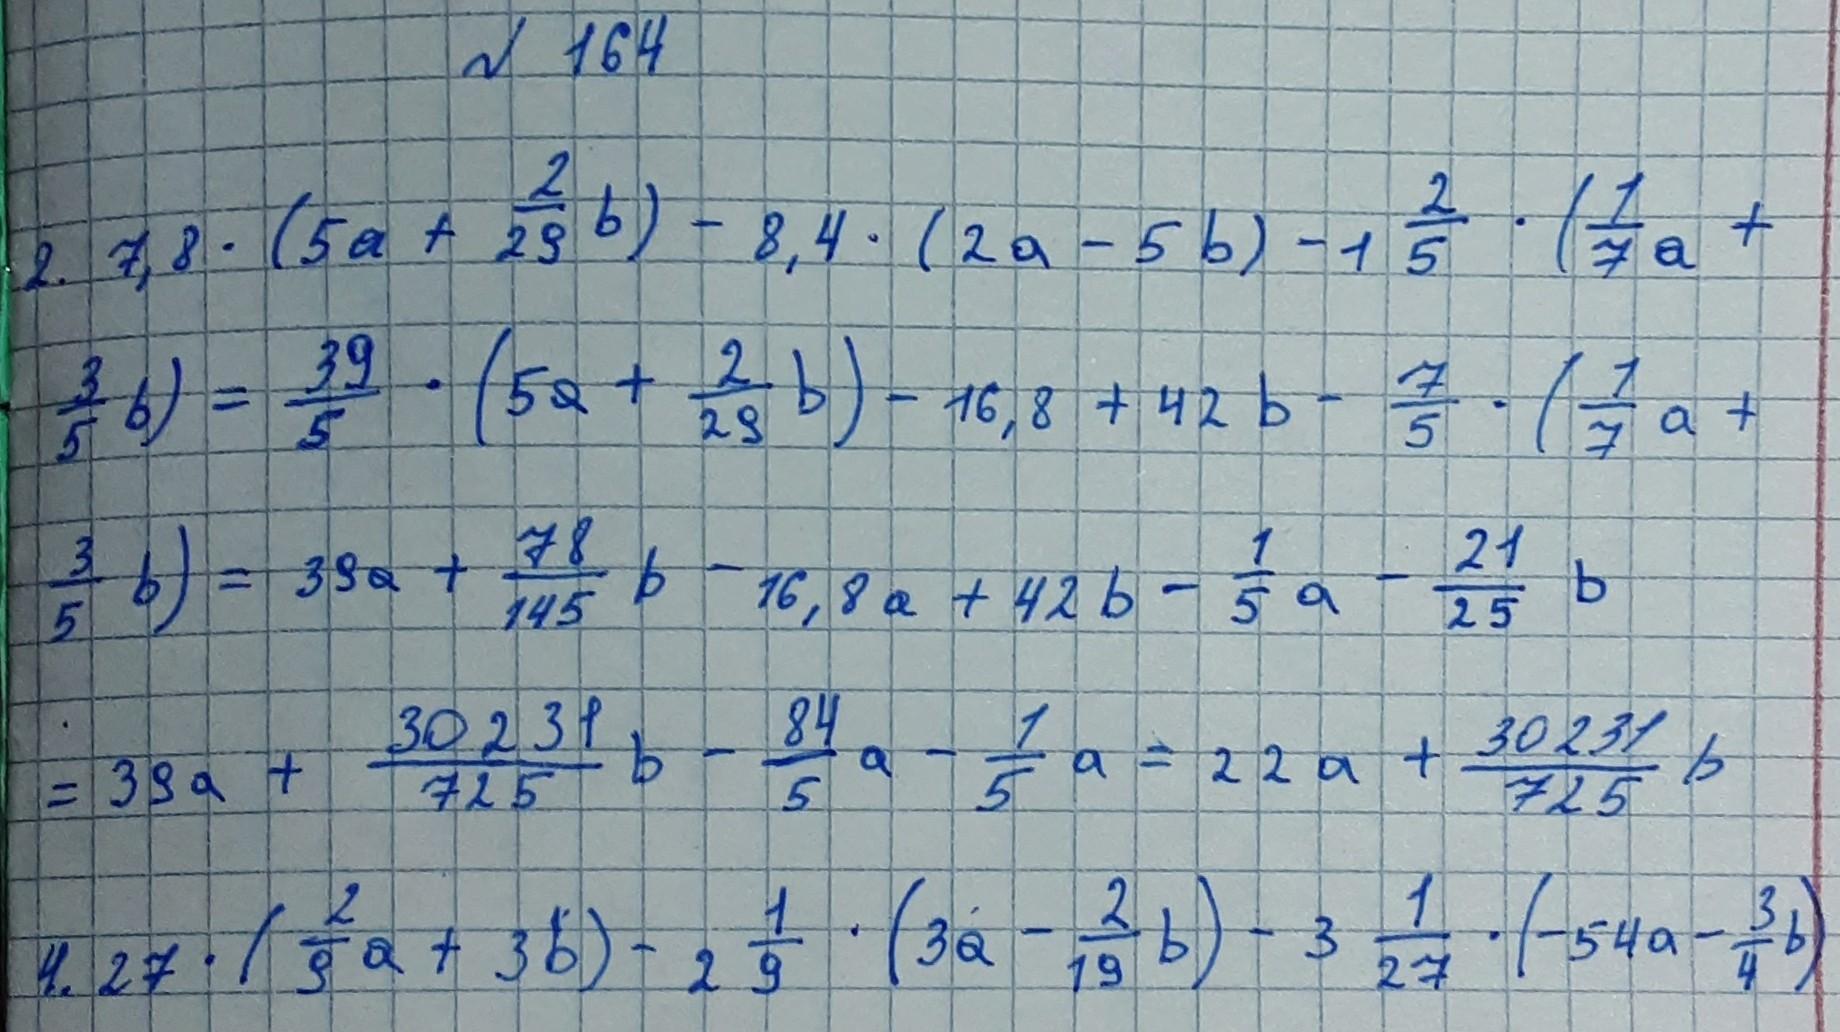 № 164
2. 7,8 · (5a + 2/29 b) - 8,4 · (2a - 5b) - 1 2/5 · (1/7 a +
3/5 b) = 39/5 · (5a + 2/29 b) - 16,8 + 42b - 7/5 · (1/7 a +
3/5 b) = 39a + 78/145 b - 16,8a + 42b - 1/5 a - 21/25 b
= 39a + 30231/725 b - 84/5 a - 1/5 a = 22a + 30231/725 b
4. 27 · (2/9 a + 3b) - 2 1/9 · (3a - 2/19 b) - 3 1/27 · (-54a - 3/4 b)